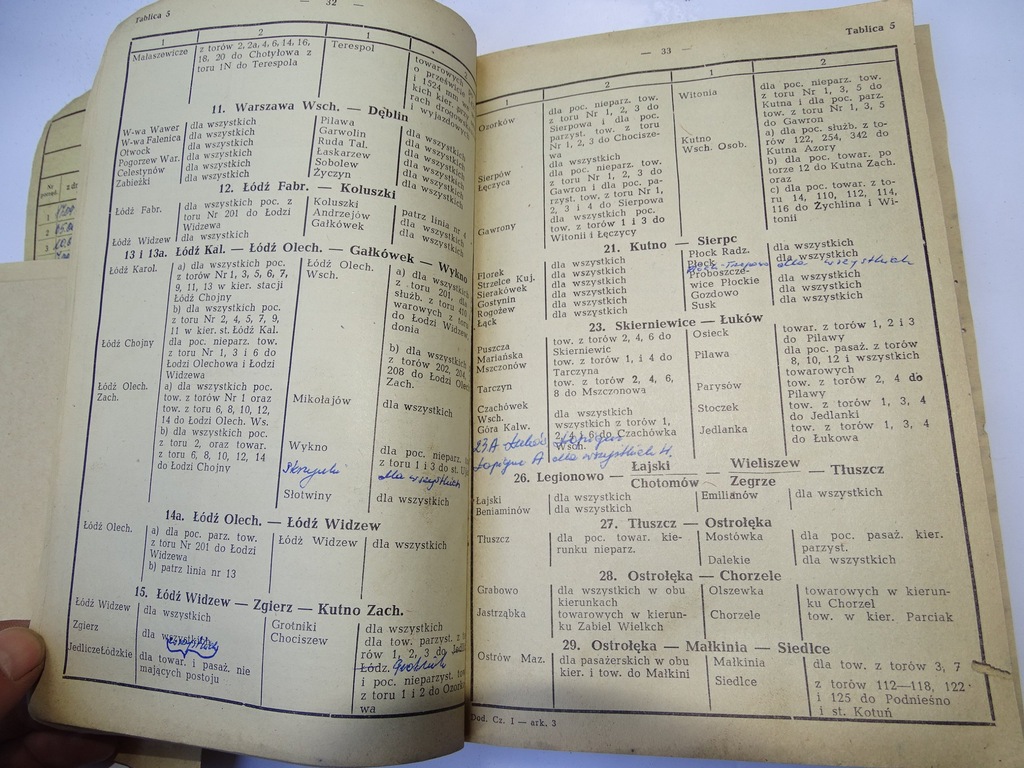 Tablica 5
— 32 —
1 2 1
Małaszewicze
z torów 2, 2a, 4, 6, 14, 16,
18, 20 do Chotyłowa z
toru 1N do Terespola
Terespol
towarowych
o prześwicie
i 1524 mm
kich kier.
rach drogowych
wyjazdowych
11. Warszawa Wsch. — Dęblin
W-wa Wawer dla wszystkich Pilawa dla wszystkich
W-wa Falenica dla wszystkich Garwolin dla wszystkich
Otwock dla wszystkich Ruda Tal. dla wszystkich
Pogorzew War. dla wszystkich Łaskarzew dla wszystkich
Celestynów dla wszystkich Sobolew dla wszystkich
Zabieżki dla wszystkich Życzyn dla wszystkich
12. Łódź Fabr. — Koluszki
Łódź Fabr.
dla wszystkich poc. z
toru Nr 201 do Łodzi
Widzewa
Łódź Widzew dla wszystkich
Koluszki patrz linia nr 4
Andrzejów dla wszystkich
Gałkówek dla wszystkich
13 i 13a. Łódź Kal. — Łódź Olech. — Gałkówek — Wykno
Łódź Karol.
a) dla wszystkich poc.
z torów Nr 1, 3, 5, 6, 7,
9, 11, 13 w kier. stacji
Łódź Chojny
b) dla wszystkich poc.
z toru Nr 2, 4, 5, 7, 9,
11 w kier. st. Łódź Kal.
Łódź Chojny
dla poc. nieparz. tow.
z toru Nr 1, 3 i 6 do
Łodzi Olechowa i Łódzi
Widzewa
Łódź Olech.
Zach.
a) dla wszystkich poc.
z torów Nr 1 oraz
tow. z toru 6, 8, 10, 12,
14 do Łodzi Olech. Ws.
b) dla wszystkich poc.
z toru 2, oraz towar.
z toru 6, 8, 10, 12, 14
do Łodzi Chojny
Łódź Olech.
Wsch.
a) dla wszystkich
z toru 201, dla
służb. z toru 410
warowych z toru
do Łodzi Widzew
donia
b) dla wszystkich
z torów 202, 204,
208 do Łodzi Olech
Zach.
Mikołajów dla wszystkich
Wykno
dla poc. nieparz.
z toru 1 i 3 do st. U
Skrzynki dla wszystkich
Słotwiny dla wszystkich
14a. Łódź Olech. — Łódź Widzew
Łódź Olech.
a) dla poc. parz. tow.
z toru Nr 201 do Łodzi
Widzewa
b) patrz linia nr 13
Łódź Widzew dla wszystkich
15. Łódź Widzew — Zgierz — Kutno Zach.
Łódź Widzew dla wszystkich
Zgierz dla wszystkich
JedliczeŁódzkie
dla towar. i pasaż. nie
mających postoju
Grotniki dla wszystkich
Chociszew
dla tow. parzyst. z to
rów 1, 2, 3 do Jedl
Łódz. Grotnik
i poc. nieparzyst. tow
z toru 1 i 2 do Ozork
wa
Tablica 5
— 33 —
1 2 1 2
Ozorków
dla poc. nieparz. tow.
z toru Nr 1, 2, 3 do
Sierpowa i dla poc.
parzyst. tow. z toru
Nr 1, 2, 3 do Chocisze-
wa
Sierpów dla wszystkich
Łęczyca
dla poc. nieparz. tow.
z toru Nr 1, 2, 3 do
Gawron i dla poc. pa-
rzyst. tow. z toru Nr 1,
2, 3 i 4 do Sierpowa
Gawrony
dla wszystkich poc.
tow. z torów 1 i 3 do
Witonii i Łęczycy
Witonia
dla poc. nieparz. tow.
z toru Nr 1, 3, 5 do
Kutna i dla poc. parz.
tow. z toru Nr 1, 3, 5
do Gawron
Kutno
Wsch. Osob.
a) dla poc. służb. z to-
rów 122, 254, 342 do
Kutna Azory
b) dla poc. towar. po
torze 12 do Kutna Zach.
oraz
c) dla poc. towar. z to-
ru 14, 110, 112, 114,
116 do Żychlina i Wi-
tonii
21. Kutno — Sierpc
Florek dla wszystkich
Strzelce Kuj. dla wszystkich
Sierakówek dla wszystkich
Gostynin dla wszystkich
Rogożew dla wszystkich
Łąck dla wszystkich
Płock Radz. dla wszystkich
Płock dla wszystkich
dla wszystkich
Proboszcze-
wice Płockie dla wszystkich
Gozdowo dla wszystkich
Susk dla wszystkich
23. Skierniewice — Łuków
Puszcza
Mariańska
tow. z torów 2, 4, 6 do
Skierniewic
Mszczonów
tow. z torów 1, i 4 do
Tarczyna
Tarczyn
tow. z torów 2, 4, 6,
8 do Mszczonowa
Czachówek
Wsch. dla wszystkich
Góra Kalw.
wszystkich z torów 1,
do Czachówka
Wsch.
Osieck
towar. z torów 1, 2 i 3
do Pilawy
Pilawa
dla poc. pasaż. z torów
8, 10, 12 i wszystkich
towarowych
Parysów
tow. z torów 2, 4 do
Pilawy
Stoczek
tow. z torów 1, 3, 4
do Jedlanki
Jedlanka
tow. z torów 1, 3, 4
do Łukowa
23A Łuków Łapiguz
Łapiguz A dla wszystkich
26. Legionowo — Łajski Chotomów — Wieliszew Zegrze — Tłuszcz
Łajski dla wszystkich Emilianów dla wszystkich
Beniaminów dla wszystkich
27. Tłuszcz — Ostrołęka
Tłuszcz
dla poc. towar. kie-
runku nieparz.
Mostówka
dla poc. pasaż. kier.
parzyst.
Dalekie dla wszystkich
28. Ostrołęka — Chorzele
Grabowo
dla wszystkich w obu
kierunkach
Jastrząbka
towarowych w kierun-
ku Zabiel Wielkch
Olszewka
towarowych w kierun-
ku Chorzel
Chorzele tow. w kier. Parciak
29. Ostrołęka — Małkinia — Siedlce
Ostrów Maz.
dla pasażerskich w obu
kier. i tow. do Małkini
Małkinia dla tow. z torów 3, 7
Siedlce
z torów 112—118, 122
i 125 do Podnieśno
i st. Kotuń
Dod. Cz. I — ark. 3